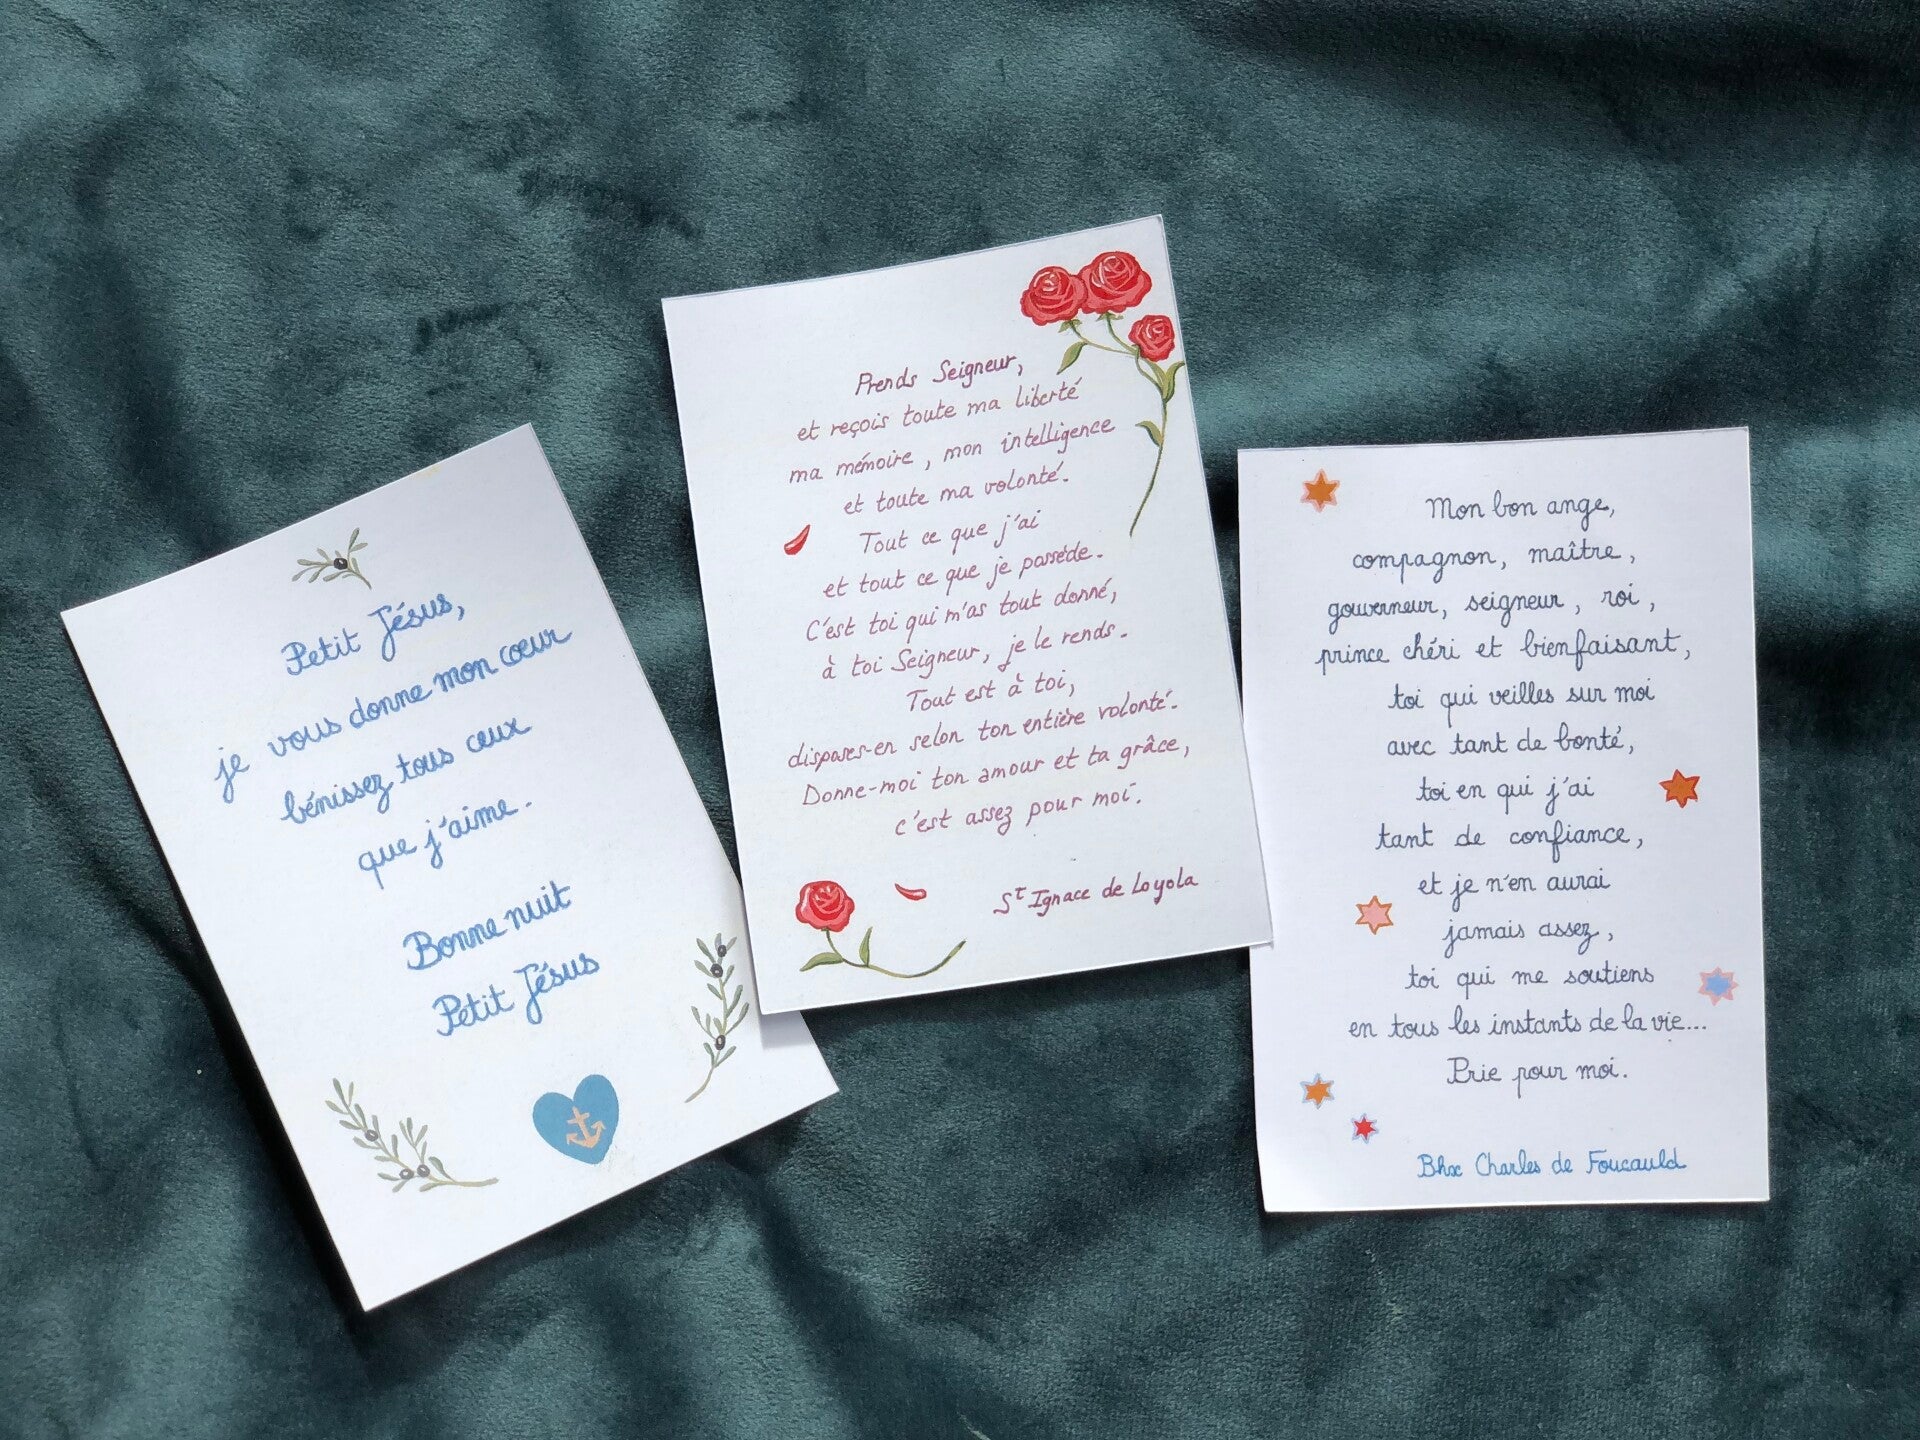 Petit Jésus,
je vous donne mon cœur
bénissez tous ceux
que j'aime.
Bonne nuit
Petit Jésus
Prends Seigneur,
et reçois toute ma liberté
ma mémoire, mon intelligence
et toute ma volonté.
Tout ce que j'ai
et tout ce que je possède.
C'est toi qui m'as tout donné,
à toi Seigneur, je le rends.
Tout est à toi,
disposes-en selon ton entière volonté.
Donne-moi ton amour et ta grâce,
c'est assez pour moi.
St Ignace de Loyola
Mon bon ange,
compagnon, maître,
gouverneur, seigneur, roi,
prince chéri et bienfaisant,
toi qui veilles sur moi
avec tant de bonté,
toi en qui j'ai
tant de confiance,
et je n'en aurai
jamais assez,
toi qui me soutiens
en tous les instants de la vie...
Prie pour moi.
Bhx Charles de Foucauld